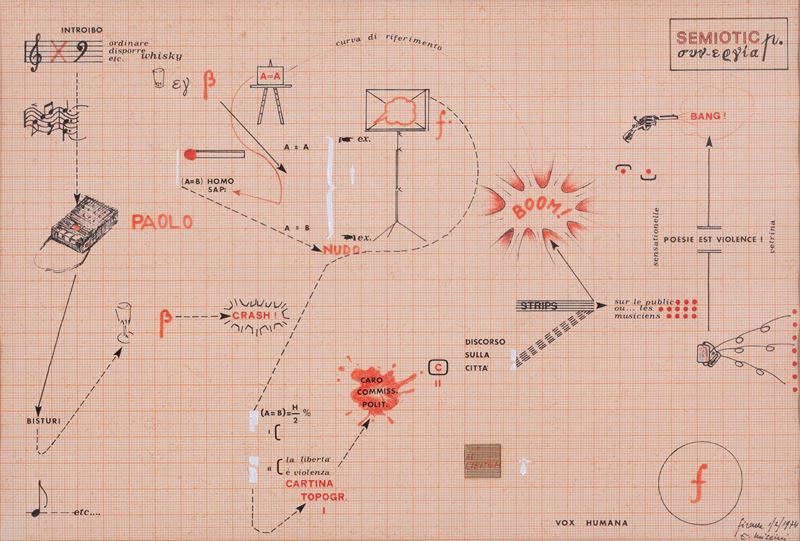 INTROIBO
ordinare
disporre
etc.
whisky
εγ
β
A=A
curva di riferimento
SEMIOTIC
συν-εργία
p.
BANG!
A = A
ex.
f
(A=B) HOMO
SAP:
PAOLO
A = B
ex.
NUDO
BOOM!
sensationelle
POESIE EST VIOLENCE !
vetrina
β
CRASH !
STRIPS
sur le public
ou... les
musiciens
DISCORSO
SULLA
CITTÀ
C
II
CARO
COMMISS.
POLIT.
BISTURI
(A=B)=H/2 %
I
II
la libertà
è violenza
CARTINA
TOPOGR.
I
etc....
f
VOX HUMANA
Firenze 1/2/1974
E. Miccini